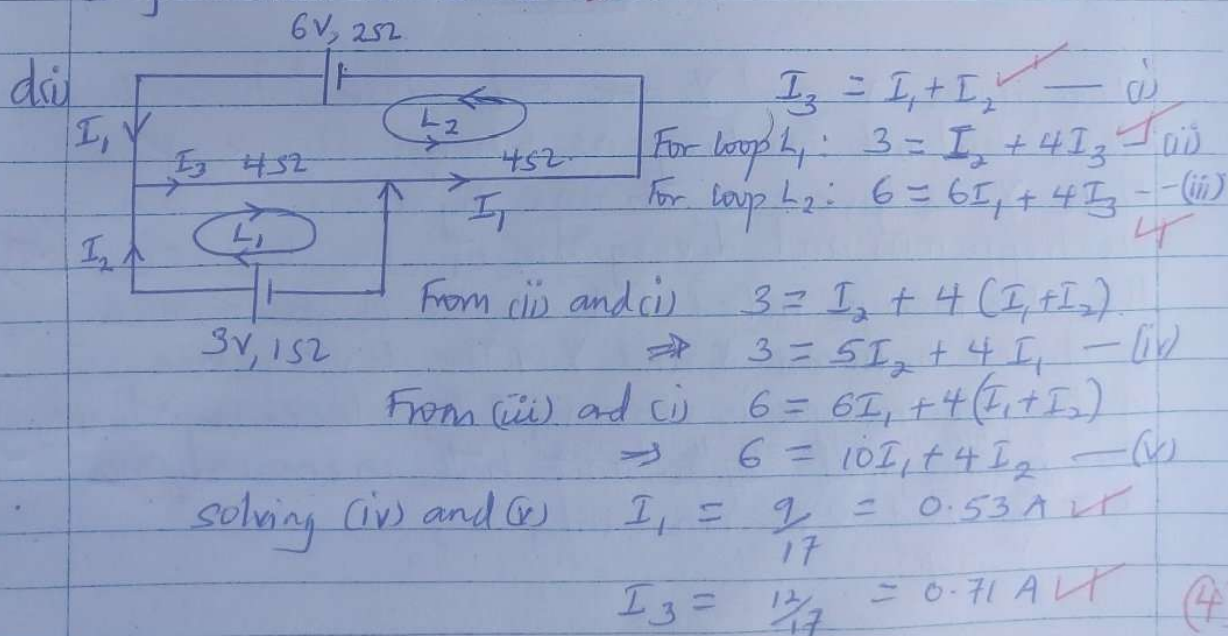 6V, 2Ω
d(i)
I₃ = I₁ + I₂ — (i)
I₁
L₂
I₃ 4Ω
4Ω
For loop L₁: 3 = I₂ + 4I₃ — (ii)
I₁
For loop L₂: 6 = 6I₁ + 4I₃ -- (iii)
L₁
I₂
3V, 1Ω
From (ii) and (i) 3 = I₂ + 4(I₁+I₂)
⇒ 3 = 5I₂ + 4I₁ — (iv)
From (iii) and (i) 6 = 6I₁ + 4(I₁+I₂)
⇒ 6 = 10I₁ + 4I₂ — (v)
solving (iv) and (v) I₁ = 9/17 = 0.53A
I₃ = 12/17 = 0.71A
(4